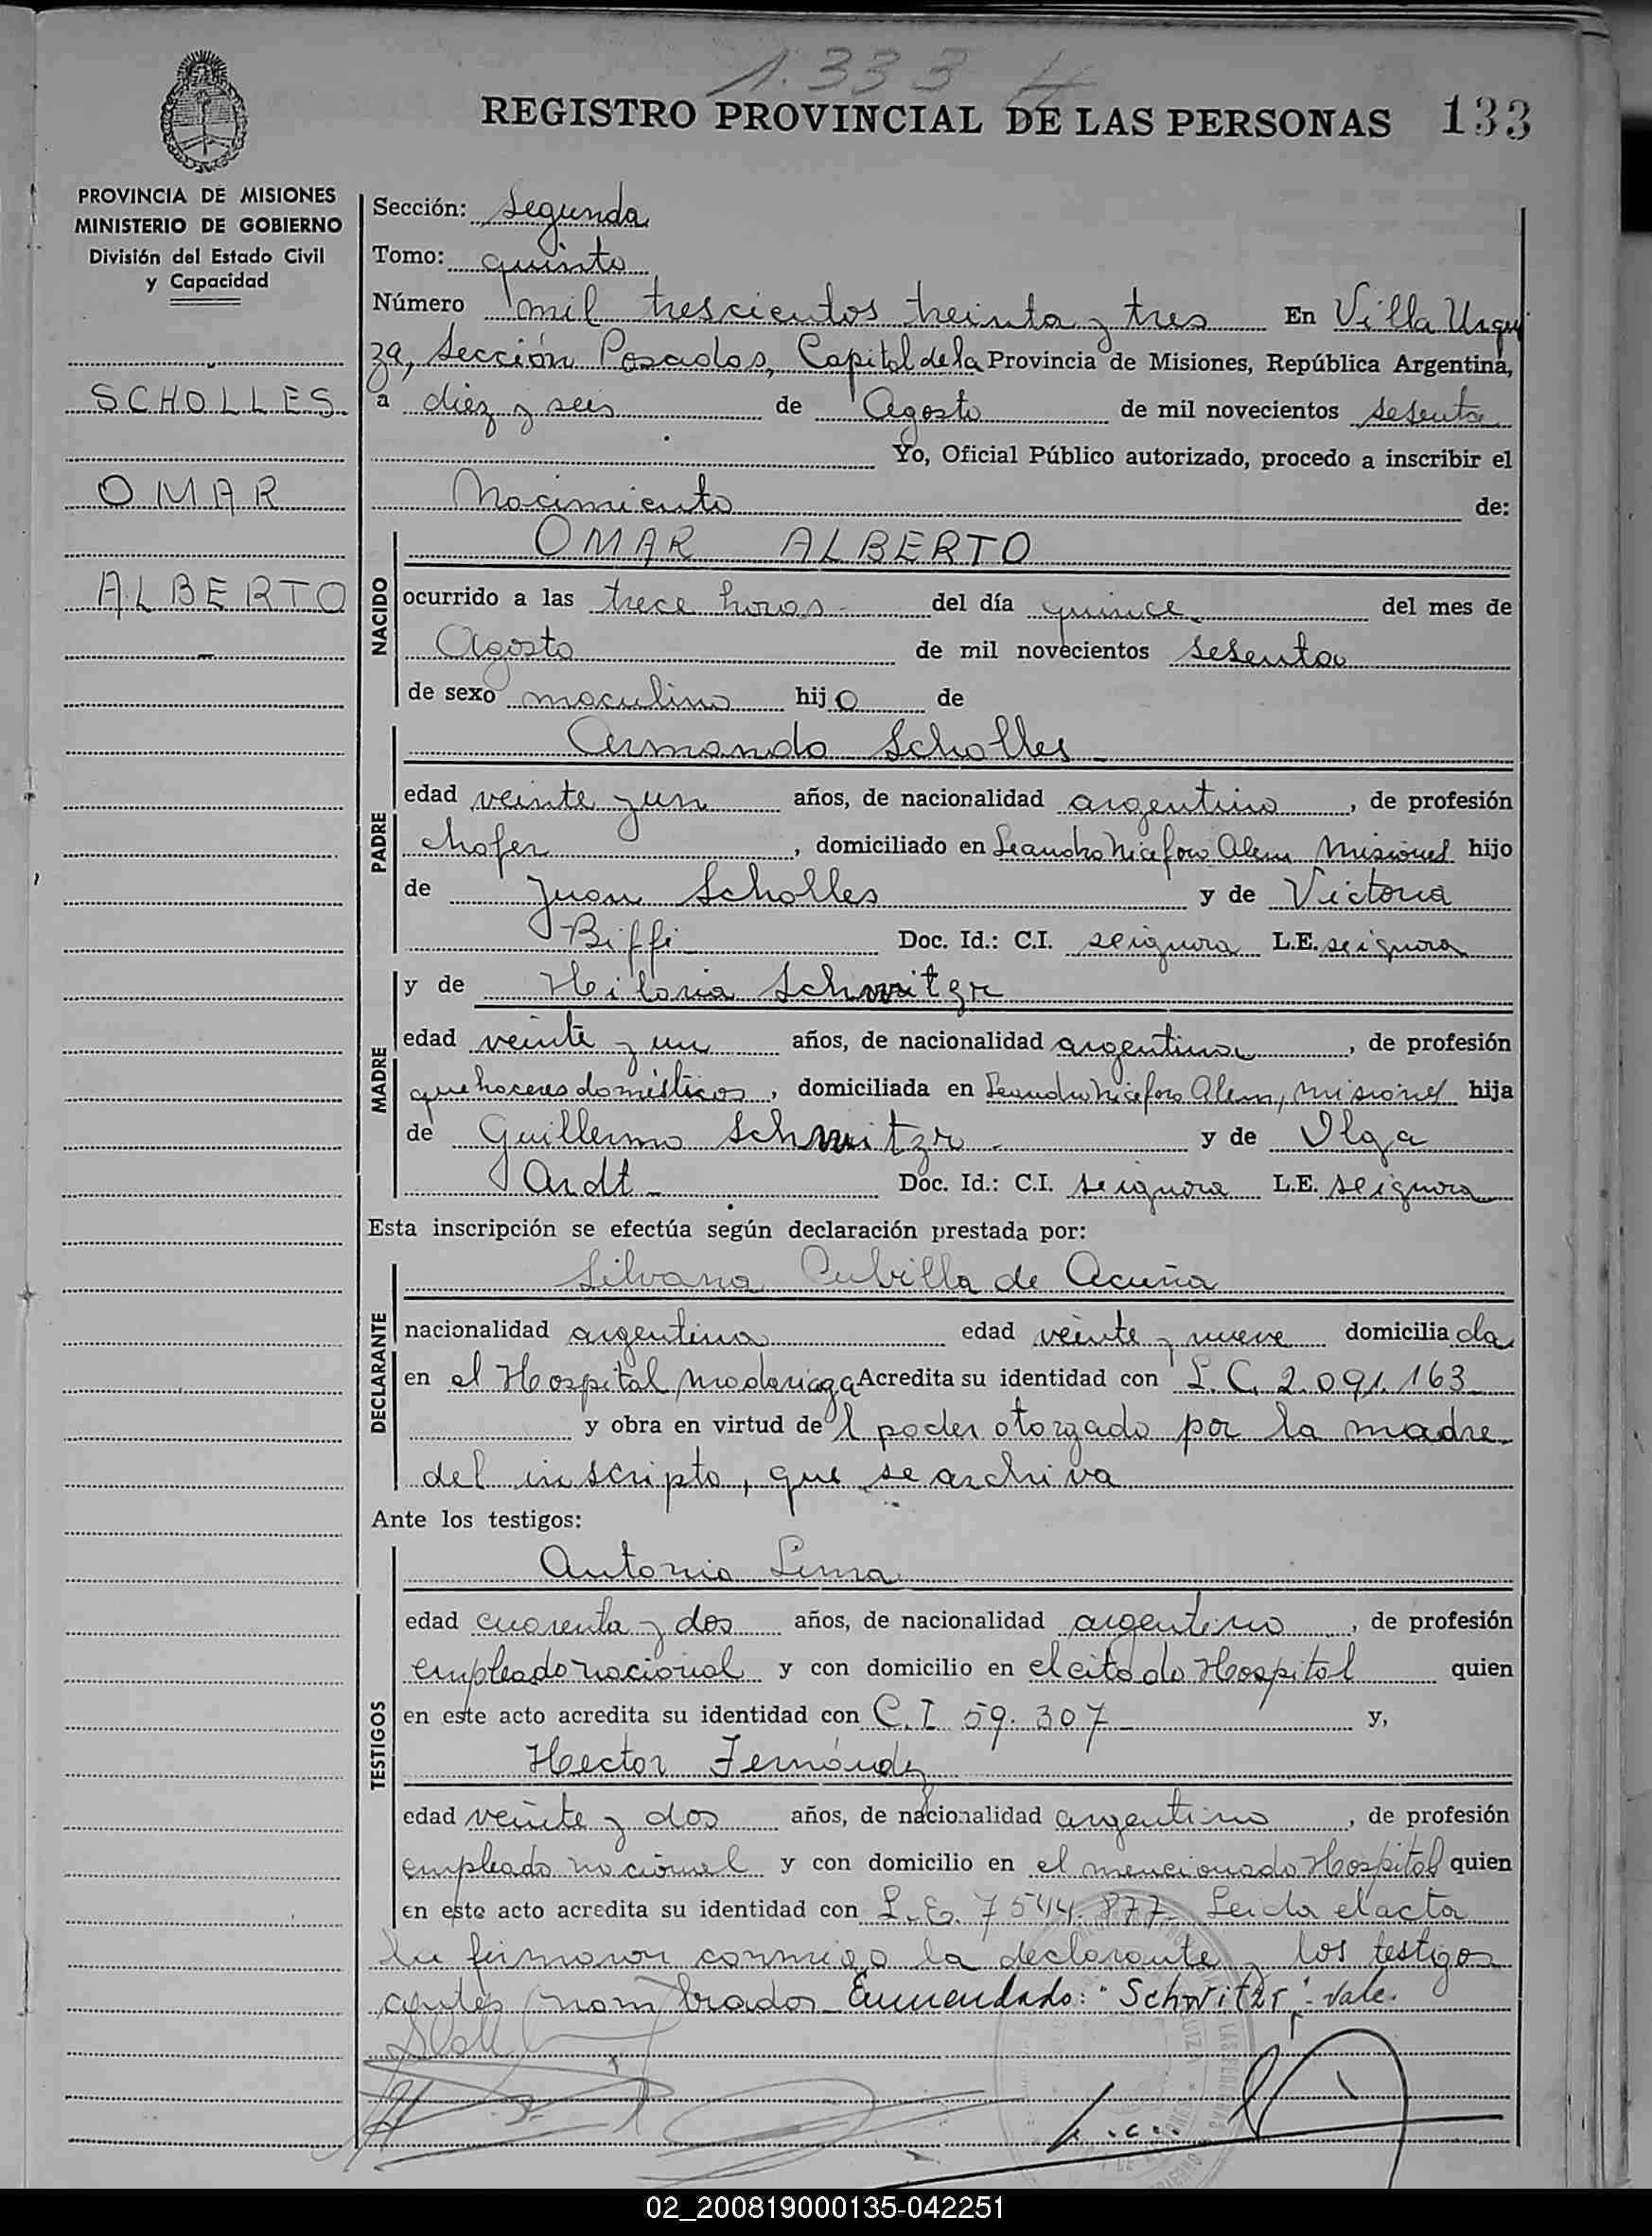 1.333
REGISTRO PROVINCIAL DE LAS PERSONAS 133
PROVINCIA DE MISIONES
MINISTERIO DE GOBIERNO
División del Estado Civil
y Capacidad
SCHOLLES
OMAR
ALBERTO
Sección: Segunda
Tomo: quinto
Número mil trescientos treinta y tres En Villa Urqui
za, Sección Posadas, Capital de la Provincia de Misiones, República Argentina,
a diez y seis de Agosto de mil novecientos sesenta
Yo, Oficial Público autorizado, procedo a inscribir el
Nacimiento de:
NACIDO
OMAR ALBERTO
ocurrido a las trece horas del día quince del mes de
Agosto de mil novecientos sesenta
de sexo masculino hijo de
PADRE
Armando Scholles
edad veinte y un años, de nacionalidad argentino, de profesión
chofer, domiciliado en Leandro Niceforo Alem Misiones hijo
de Juan Scholles y de Victoria
Biffi Doc. Id.: C.I. se ignora L.E. se ignora
MADRE
y de Hilaria Schwitzr
edad veinte y un años, de nacionalidad argentina, de profesión
quehaceres domésticos, domiciliada en Leandro Niceforo Alem, Misiones hija
de Guillermo Schwitzr y de Olga
Ardt Doc. Id.: C.I. se ignora L.E. se ignora
Esta inscripción se efectúa según declaración prestada por:
DECLARANTE
Silvana Cubilla de Acuña
nacionalidad argentina edad veinte y nueve domiciliada
en el Hospital Madariaga Acredita su identidad con L.C. 2.091.163
y obra en virtud del poder otorgado por la madre
del inscripto, que se archiva
Ante los testigos:
TESTIGOS
Antonio Lima
edad cuarenta y dos años, de nacionalidad argentino, de profesión
empleado nacional y con domicilio en el citado Hospital quien
en este acto acredita su identidad con C.I 59.307 y,
Hector Fernández
edad veinte y dos años, de nacionalidad argentino, de profesión
empleado nacional y con domicilio en el mencionado Hospital quien
en este acto acredita su identidad con L.E. 7544.877 Leida el acta
la firmaron conmigo la declarante y los testigos
antes nombrados Enmendado: "Schwitzr": Vale.
02_200819000135-042251